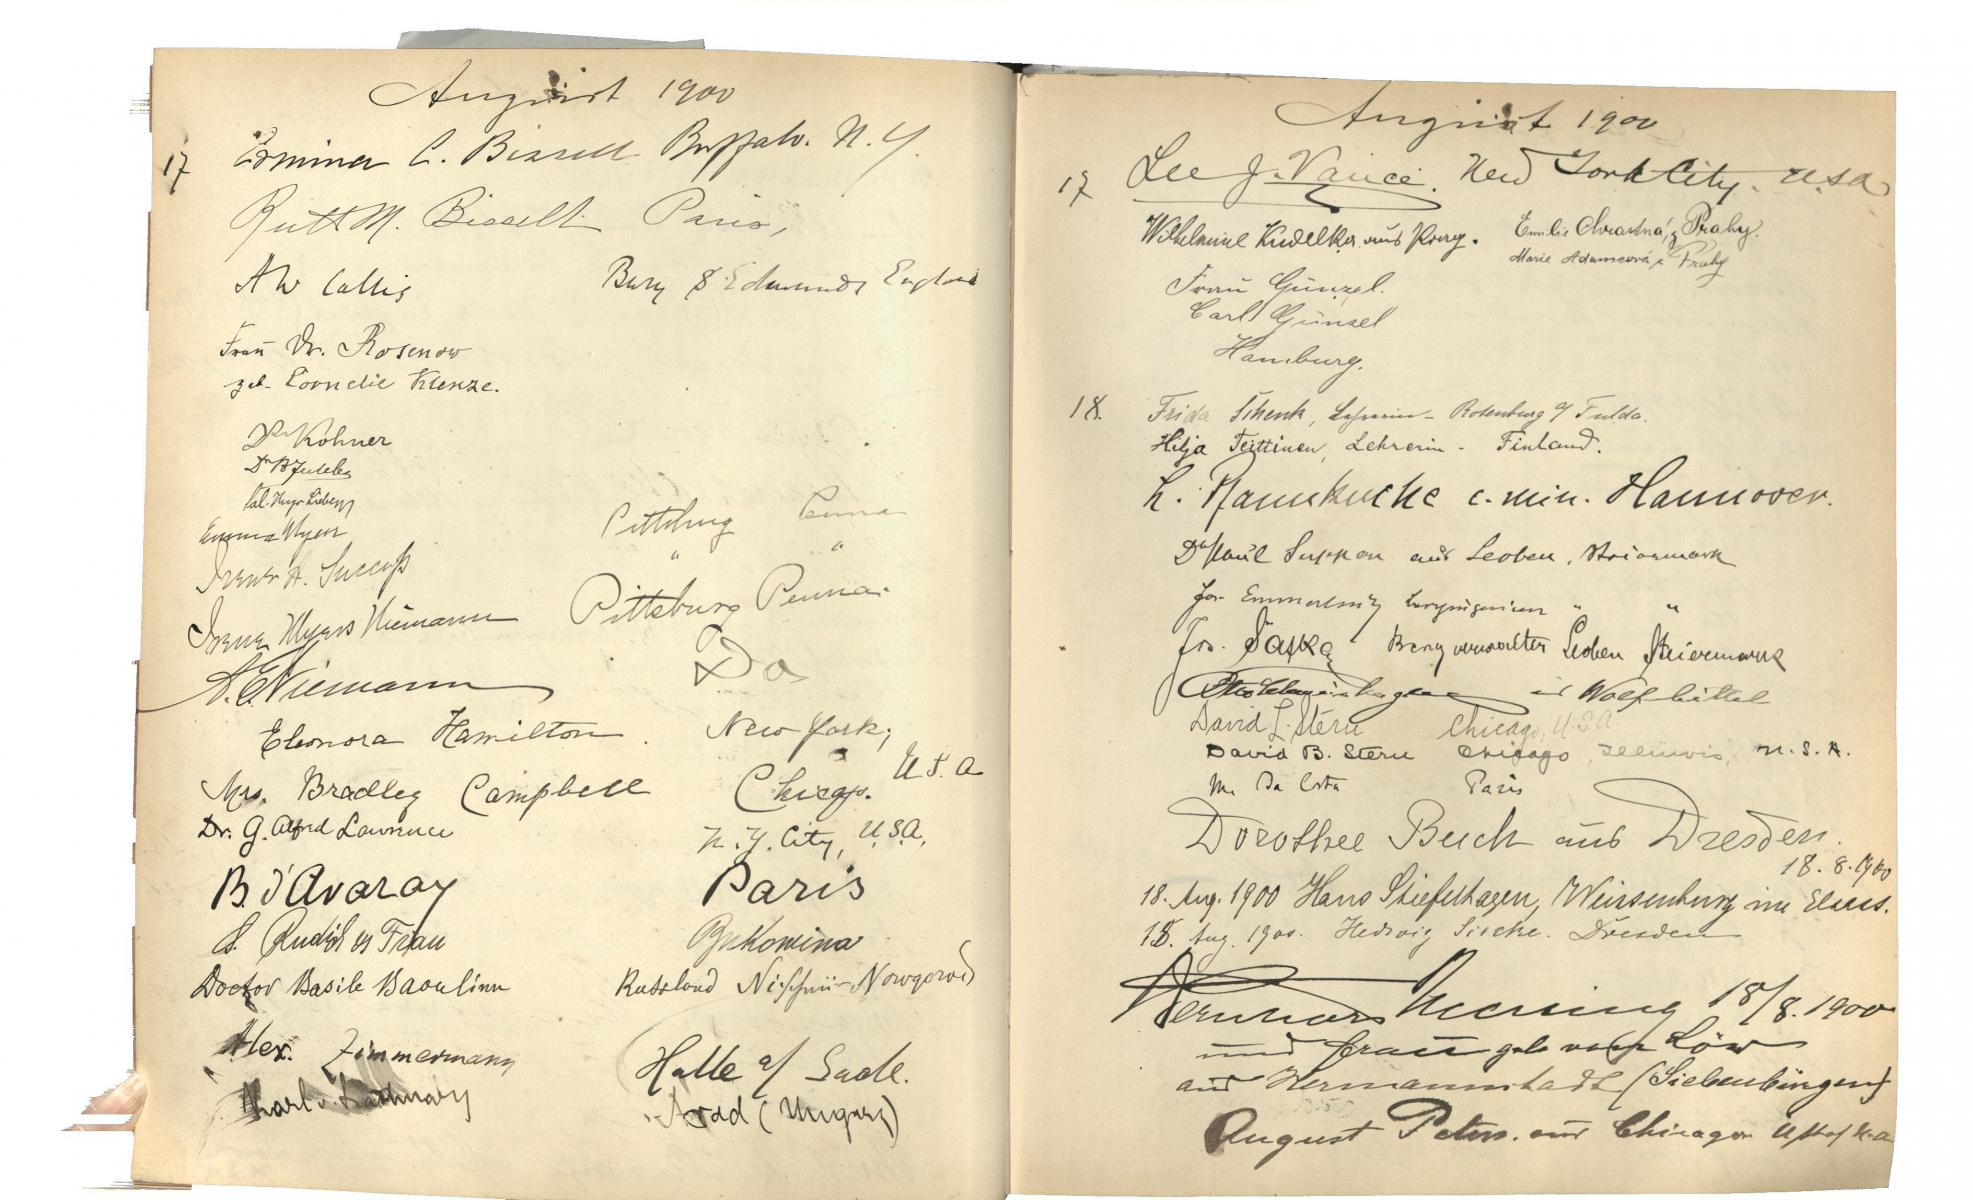 August 1900
17 Ermina C. Bissell Buffalo. N. Y.
Ruth M. Bissell. Paris,
A W Callis Bury St Edmunds England
Frau Dr. Rosenow
geb. Cornelie Klenze.
Dr Kohner
Dr
Emma Myers Pittsburg Penna
Irene A. " "
Irene Myers Niemann Pittsburg Penna.
A. E. Niemann Do
Eleonora Hamilton. New York,
U. S. A
Mrs. Bradley Campbell Chicago.
Dr. G. Alfred Lawrence N. Y. City, U.S.A.
B. d'Avaray Paris
S. Rudich u Frau Bukowina
Doctor Basile Baoulinn Russland Nischnii-Nowgorod
Alex. Zimmermann Halle a/ Saale.
Karl v. Kathmáry Arad (Ungarn)
August 1900
17 Lee J. Vance. New York City. U.S.A
Wilhelmine Kudelka aus Prag. Emilie Chrastná, z Prahy.
Marie Adamcová z Prahy
Frau Günzel.
Carl Günzel
Hamburg.
18. Frida Schenk, Lehrerin - Rotenburg a/ Fulda.
Hilja Teittinen, Lehrerin - Finland.
c. min. Hannover.
Dr Paul Suppan aus Leoben, Steiermark
Jos. " "
Jos. Šafka Bergverwalter Leoben Steiermark
in Wolfenbüttel
David L. Stern Chicago, U.S.A.
David B. Stern Chicago, Illinois, U.S.A.
M. Da Costa Paris
Dorothee Buch aus Dresden.
18. 8. 1900
18. Aug. 1900 Hans Stiefelhagen, Weissenburg im Elsass.
18. Aug. 1900. Hedwig Dresden
18/8. 1900
und Frau geb. von Löw
aus Hermannstadt (Siebenbürgen)
August Peters. aus Chicago